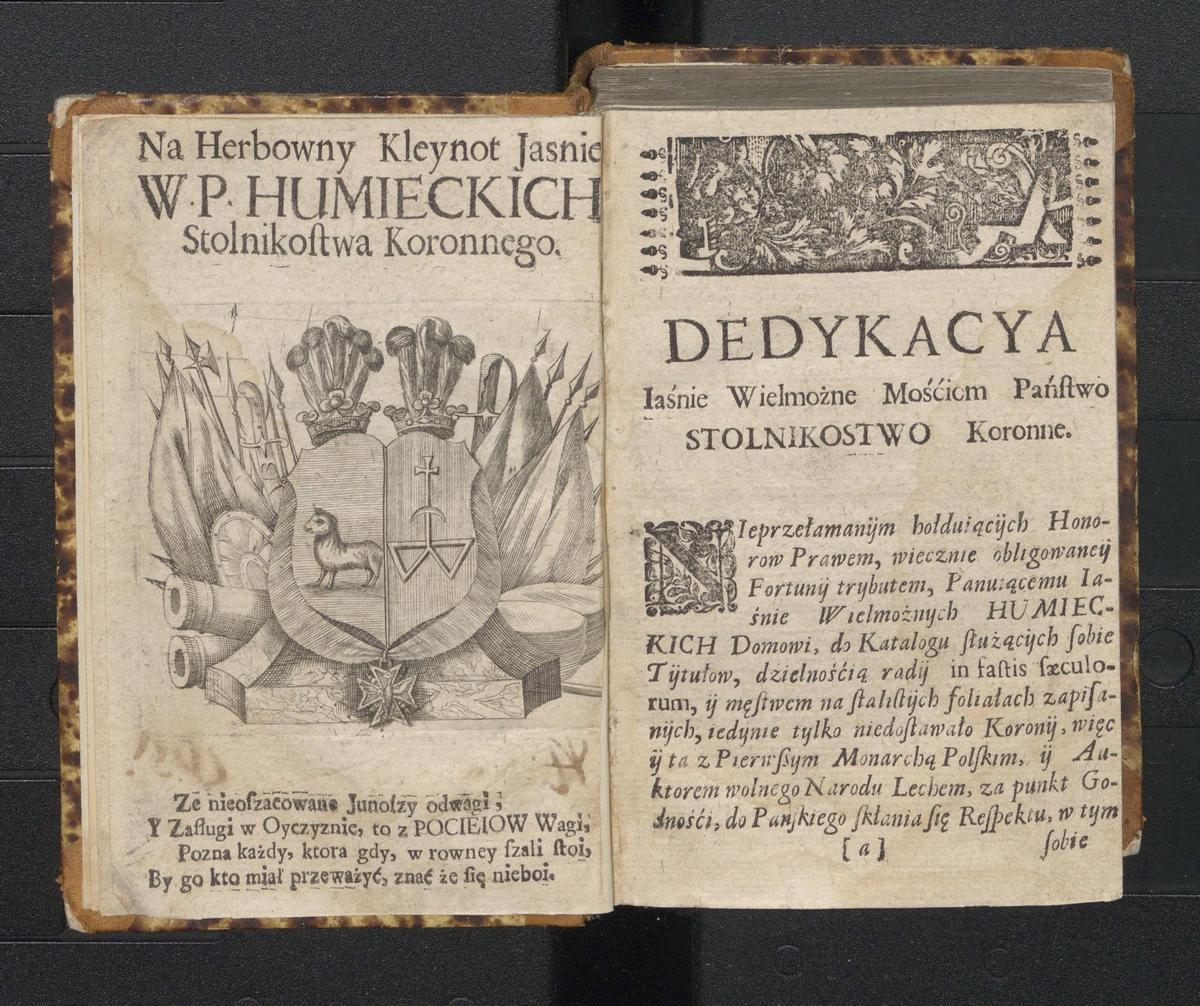 Na Herbowny Kleynot Jasnie
W·P· HUMIECKICH
Stolnikoſtwa Koronnego.
Ze nieoſzacowane Junoſzy odwagi;
Y Zaſługi w Oyczyznie, to z POCIEIOW Wagi;
Pozna każdy, ktora gdy, w rowney ſzali ſtoi,
By go kto miał przeważyć, znać że ſię nieboi.
DEDYKACYA
Iaśnie Wielmożne Mośćiom Pańſtwo
STOLNIKOSTWO Koronne.
NIeprzełamanijm hołduiącijch Hono-
row Prawem, wiecznie obligowaneij
Fortunij trybutem, Panuiącemu Ia-
śnie Wielmożnych HUMIEC-
KICH Domowi, do Katalogu ſłużących ſobie
Tijtułow, dzielnośćią radij in faſtis ſæculo-
rum, ij męſtwem na ſtaliſtijch foliałach zapiſa-
nijch, iedynie tylko niedoſtawało Koronij, więc
ij ta z Pierwſſym Monarchą Polſkim, ij Au-
ktorem wolnego Narodu Lechem, za punkt Go-
dnośći, do Pańſkiego ſkłania ſię Reſpektu, w tym
[a] ſobie